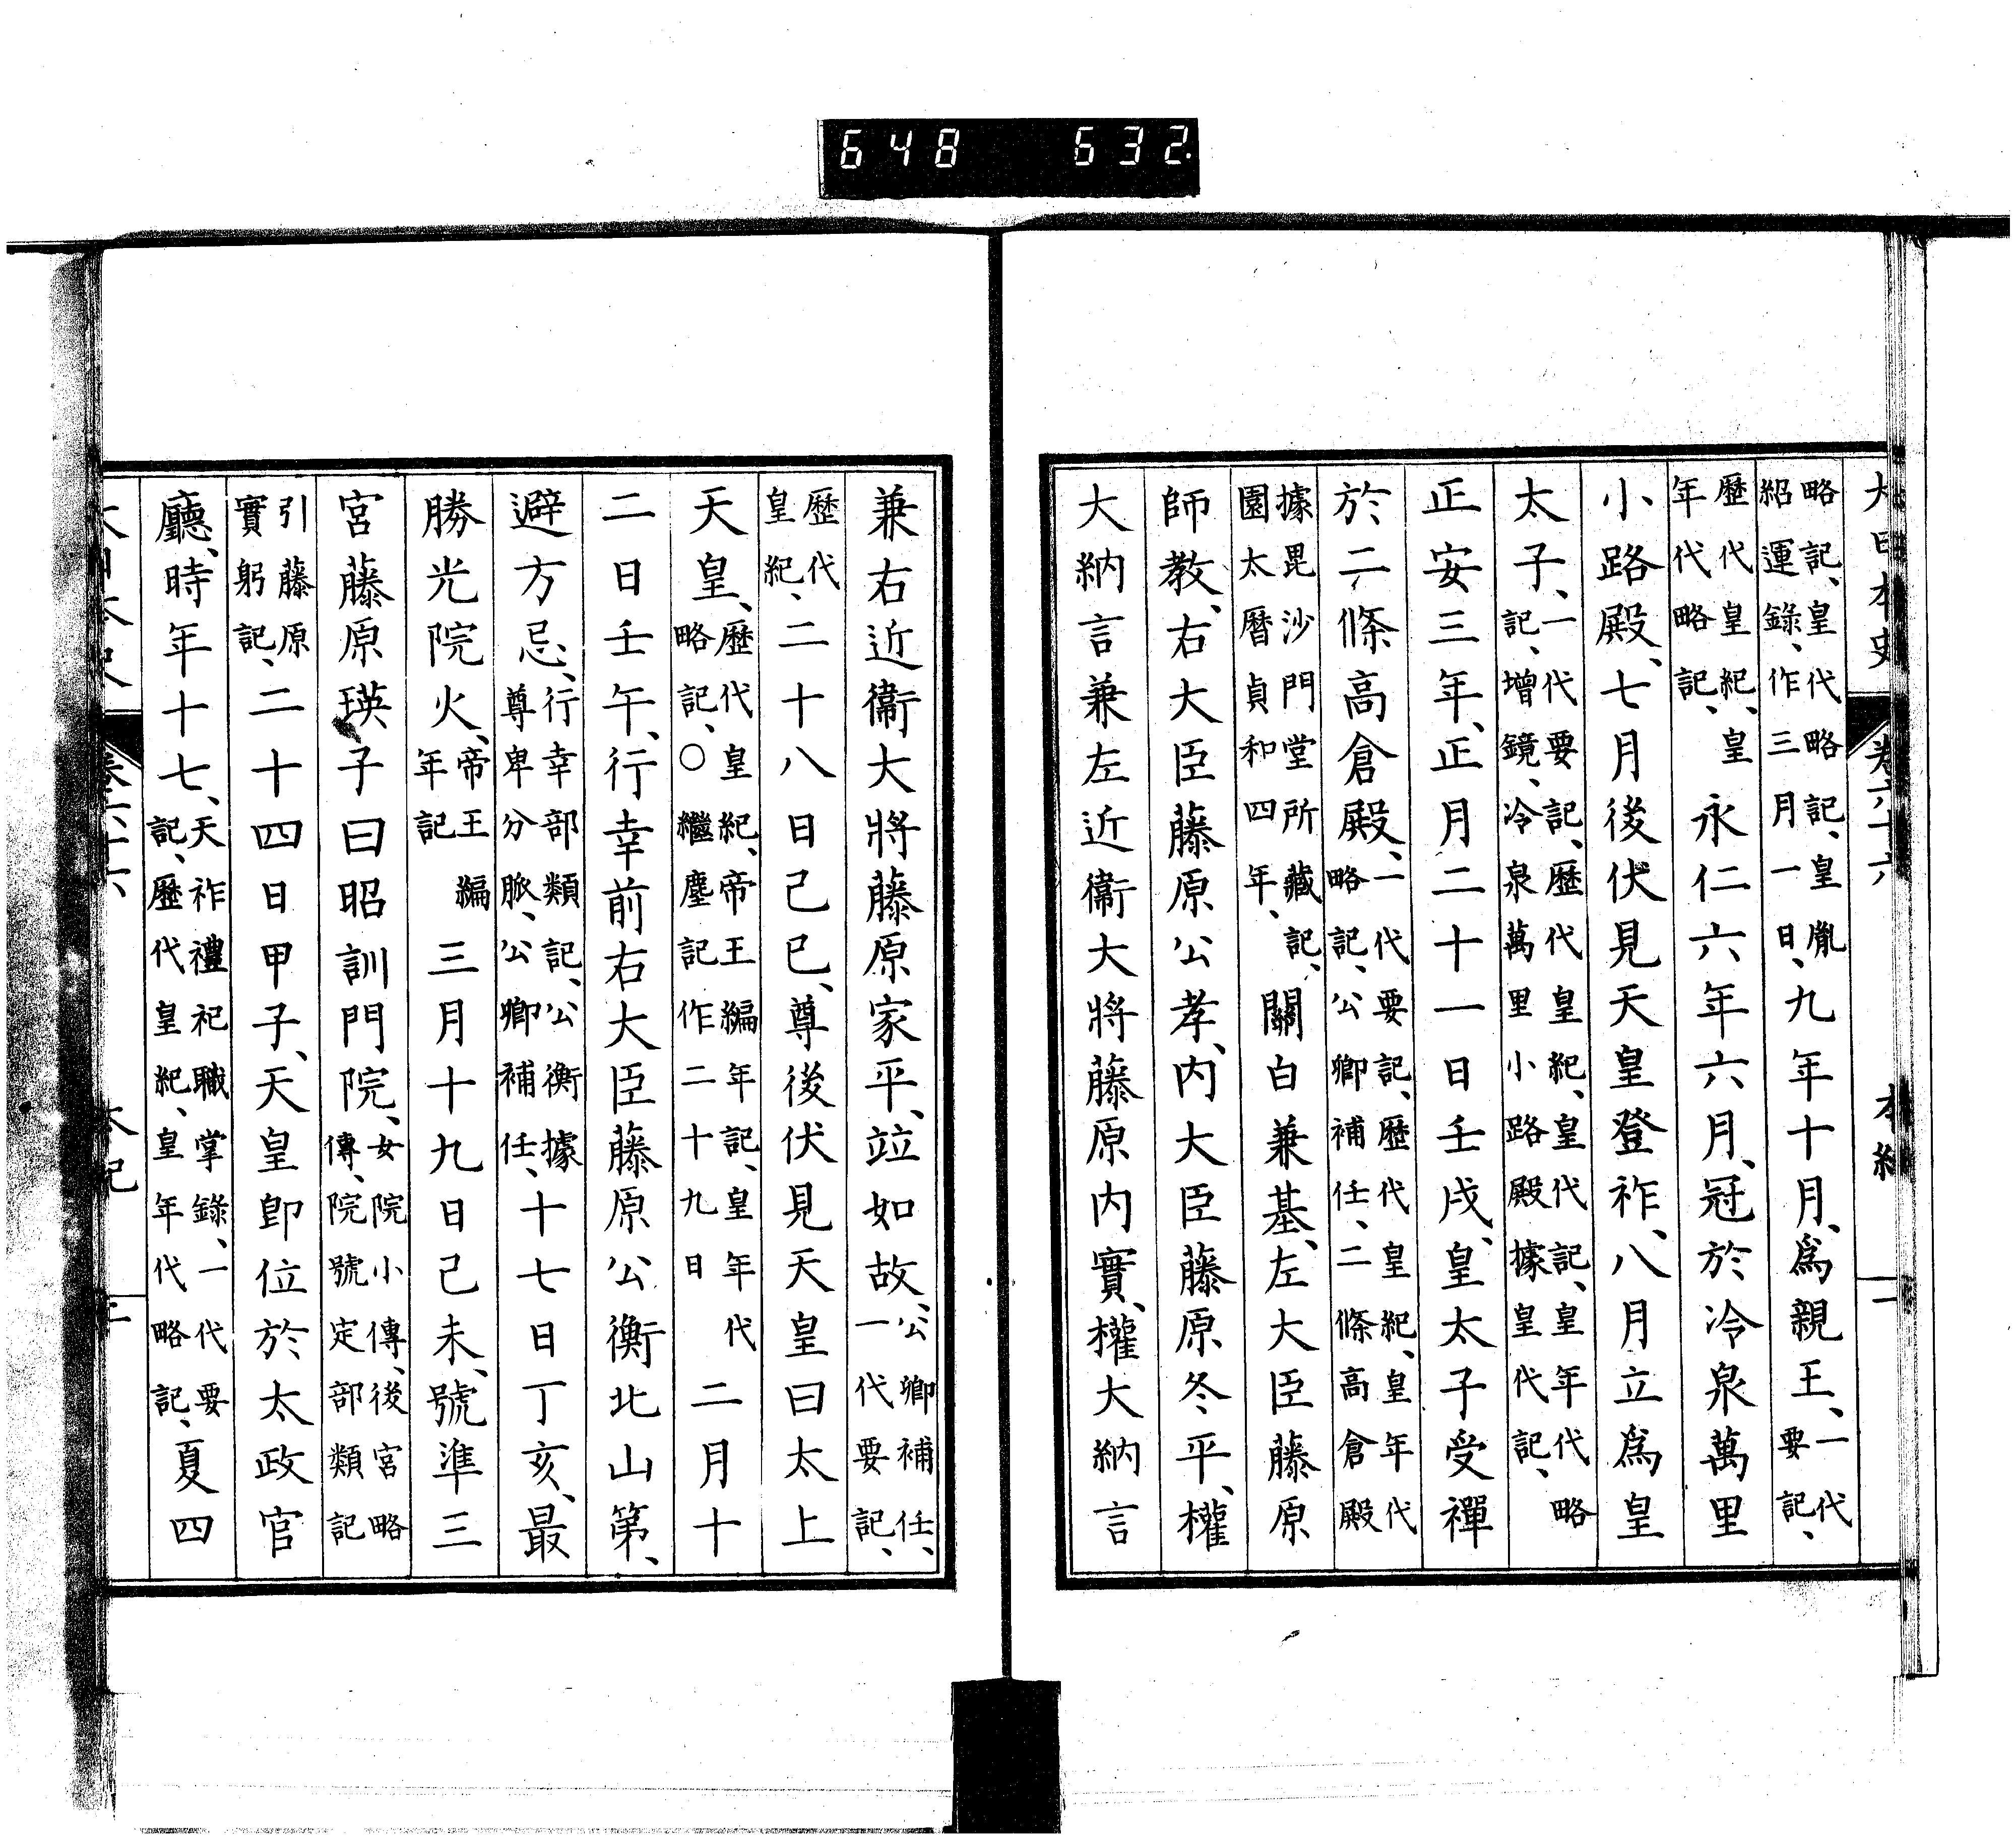 648 632.
大日本史 卷六十六 本紀 二
略記、皇代略記、皇胤紹運錄、作三月一日、九年十月、爲親王、一代要記、
歷代皇紀、皇年代略記、永仁六年六月、冠於冷泉萬里
小路殿、七月後伏見天皇登祚、八月立爲皇
太子、一代要記、歷代皇紀、皇代記、皇年代略記、增鏡、冷泉萬里小路殿據皇代記、
正安三年、正月二十一日壬戌、皇太子受禪
於二條高倉殿、一代要記、歷代皇紀、皇年代略記、公卿補任、二條高倉殿
據毘沙門堂所藏記、園太曆貞和四年、關白兼基、左大臣藤原
師教、右大臣藤原公孝、內大臣藤原冬平、權
大納言兼左近衞大將藤原內實、權大納言
兼右近衞大將藤原家平、竝如故、公卿補任、一代要記、
歷代皇紀、二十八日己巳、尊後伏見天皇曰太上
天皇、歷代皇紀、帝王編年記、皇年代略記、○繼塵記作二十九日 二月十
二日壬午、行幸前右大臣藤原公衡北山第、
避方忌、行幸部類記、公衡據尊卑分脈、公卿補任、十七日丁亥、最
勝光院火、帝王編年記 三月十九日己未、號準三
宮藤原瑛子曰昭訓門院、女院小傳、後宮略傳、院號定部類記
引藤原實躬記、二十四日甲子、天皇卽位於太政官
廳、時年十七、天祚禮祀職掌錄、一代要記、歷代皇紀、皇年代略記、夏四